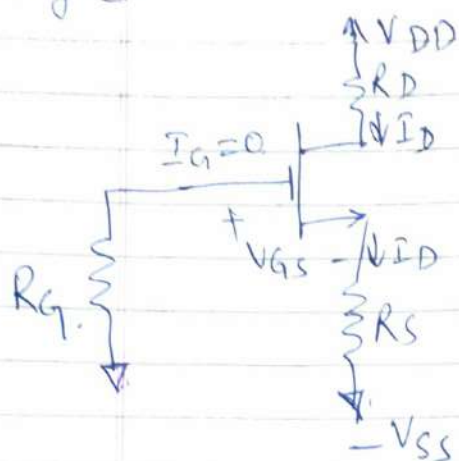 VDD
RD
IG=0
↓ID
+
VGS - ↓ID
RG.
RS
-VSS